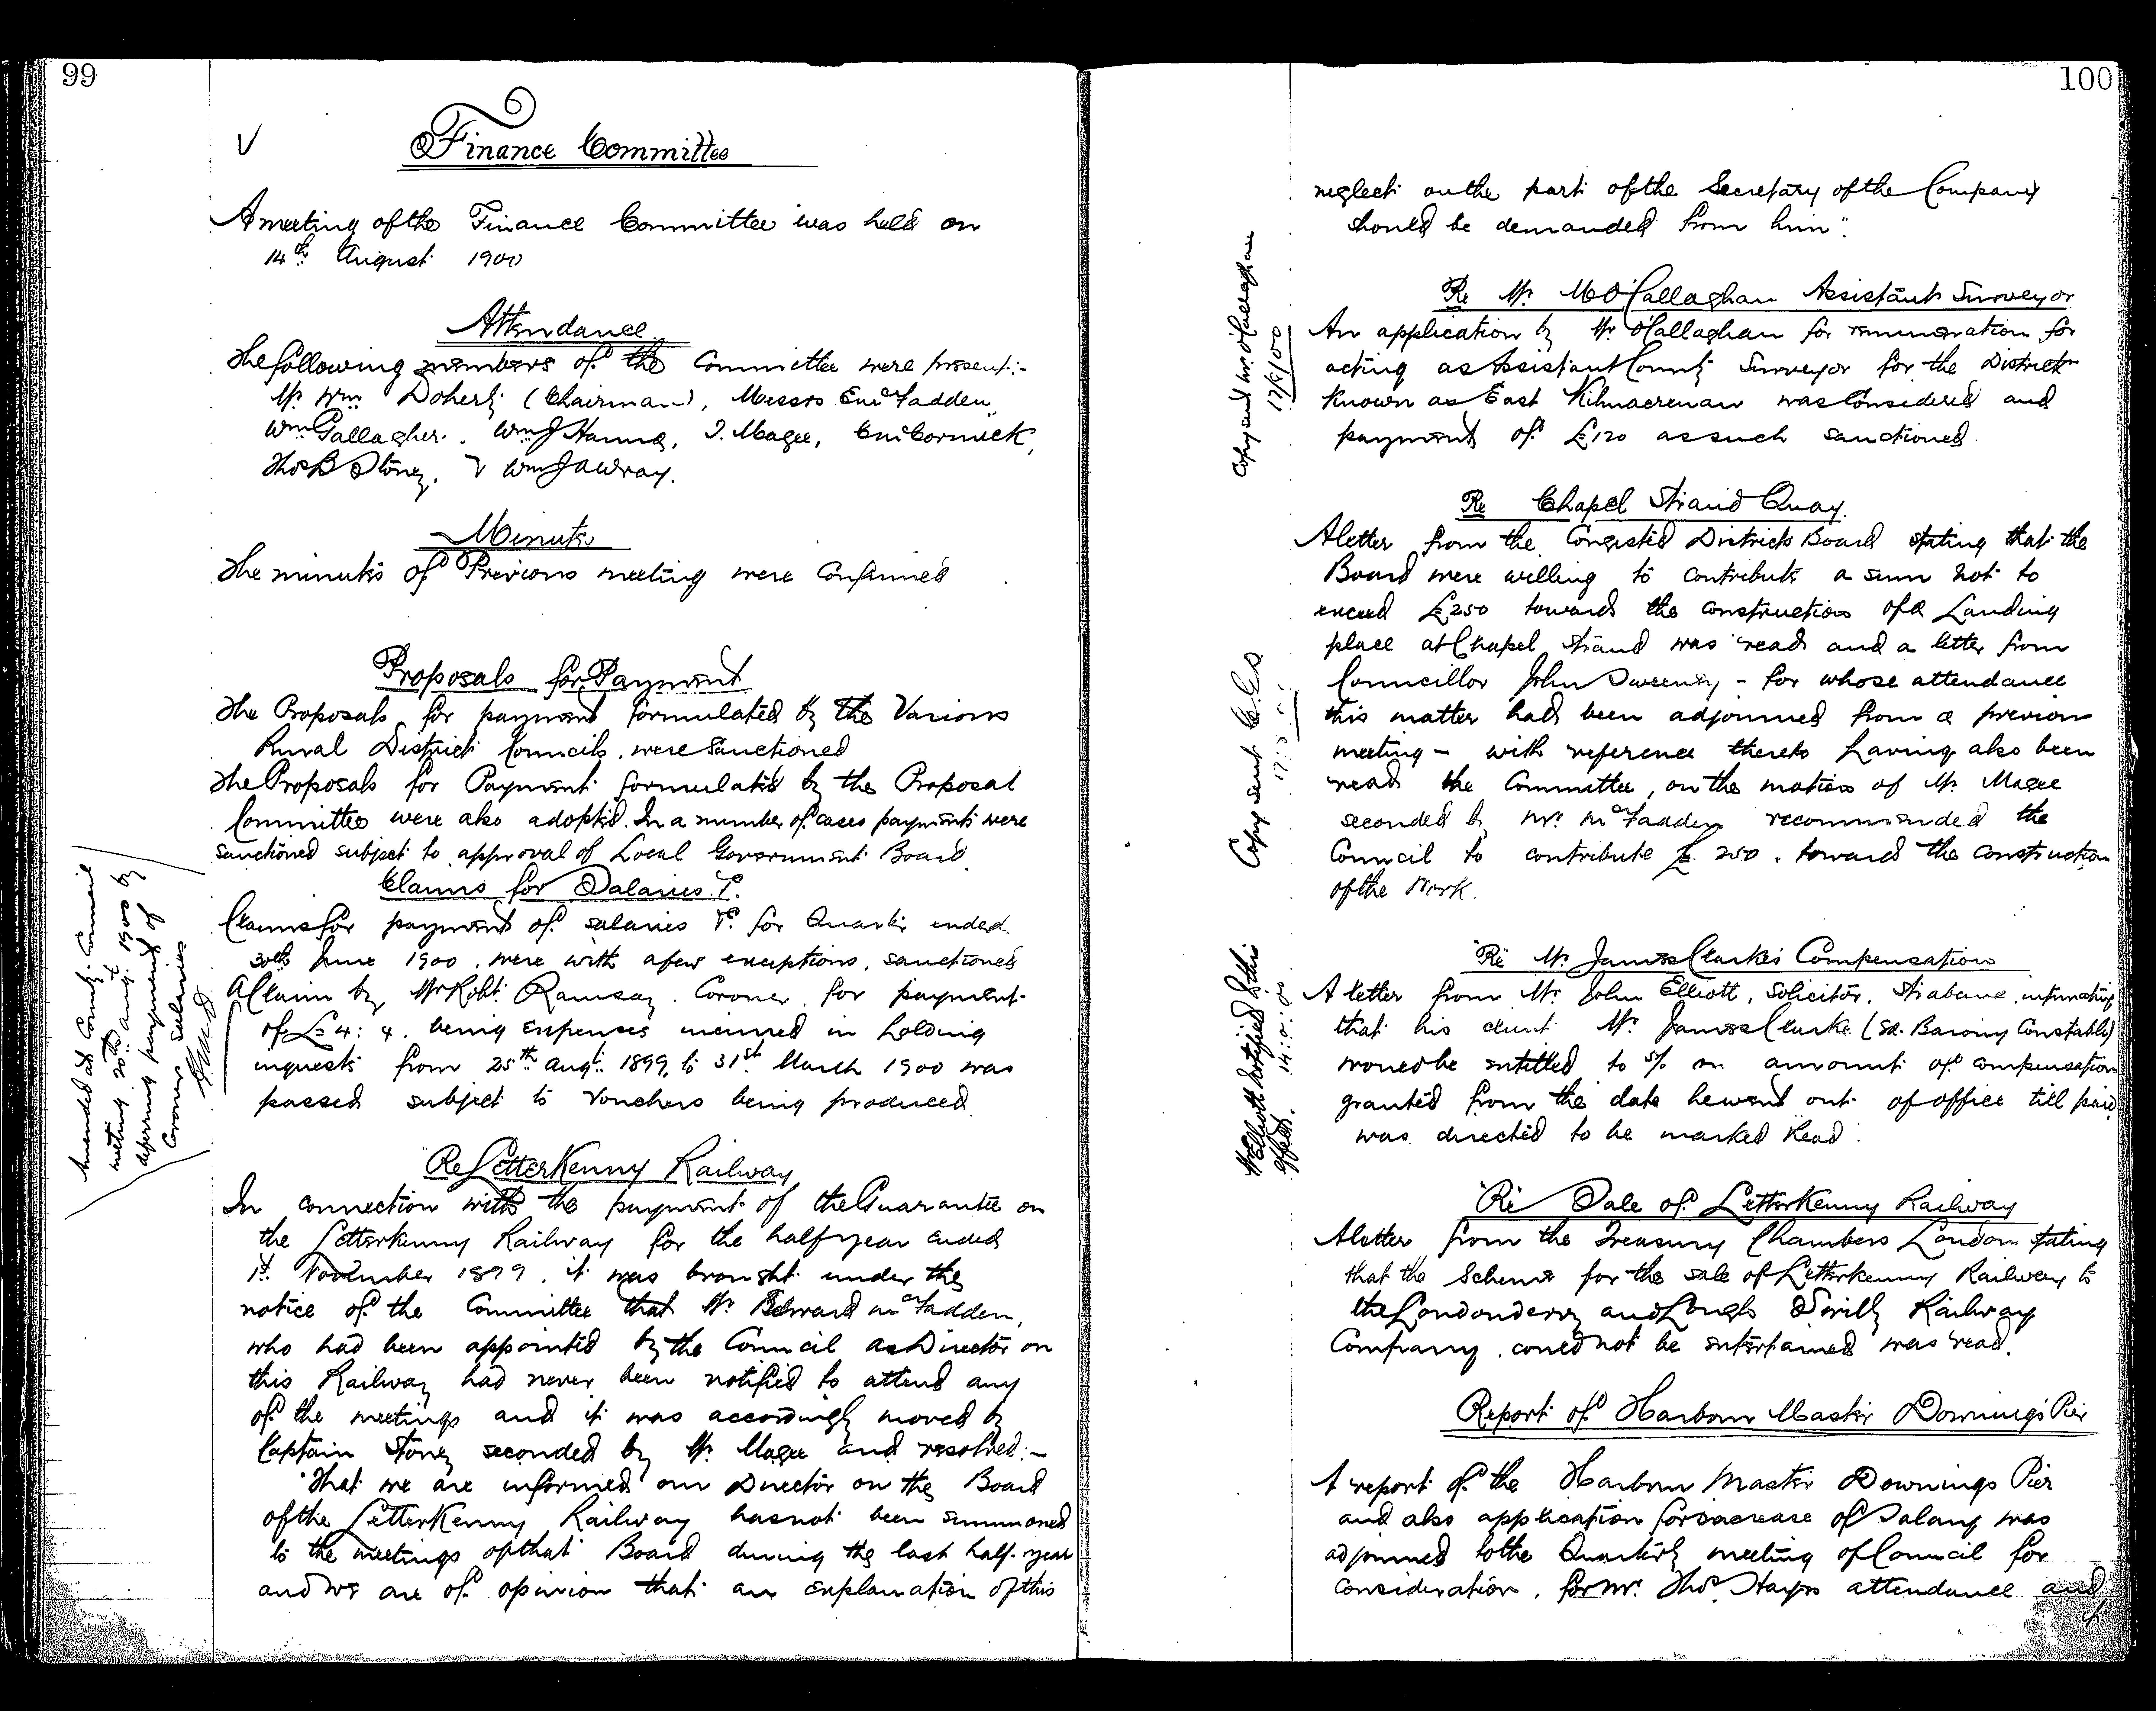 99
Finance Committee
A meeting of the Finance Committee was held on
14th August 1900
Attendance
The following members of the Committee were present:-
Mr Wm Doherty (Chairman), Messrs E McFadden,
Wm Gallagher, Wm J Hanna, J. Magee, McCormick,
Thos B Stoney, & Wm J A Wray.
Minutes
The minutes of Previous meeting were Confirmed
Proposals for Payment
The Proposals for payment formulated by the Various
Rural District Councils were Sanctioned
The Proposals for Payment formulated by the Proposal
Committee were also adopted. In a number of cases payments were
sanctioned subject to approval of Local Government Board.
Claims for Salaries &c.
Claims for payment of salaries &c. for Quarter ended
30th June 1900. were with a few exceptions, sanctioned
A Claim by Mr Robt. Ramsay. Coroner. for payment
of £4: 4. being expenses incurred in holding
inquests from 25th Augt. 1899, to 31st March 1900 was
passed subject to vouchers being produced.
Amended at County Council
meeting 20th Augt 1900 by
deferring payment of
Coroners salaries
Re Letterkenny Railway
In connection with the payment of the Guarantee on
the Letterkenny Railway for the half year ended
1st. November 1899. it was brought under the
notice of the Committee that Mr Edward McFadden,
who had been appointed by the Council as Director on
this Railway had never been notified to attend any
of the meetings and it was accordingly moved by
Captain Stoney seconded by Mr Magee and resolved:-
"That we are informed our Director on the Board
of the Letterkenny Railway has not been summoned
to the meetings of that Board during the last half-year
and we are of opinion that an explanation of this
100
neglect on the part of the Secretary of the Company
should be demanded from him".
Re Mr. M O'Callaghan Assistant Surveyor
An application by Mr O'Callaghan for remuneration for
acting as Assistant County Surveyor for the District
known as East Kilmacrenan was Considered and
payment of £120 as such sanctioned.
Copy send Mr. O'Callaghan
17/8/00
Re Chapel Strand Quay.
A letter from the Congested Districts Board stating that the
Board were willing to contribute a sum not to
exceed £250 towards the construction of a Landing
place at Chapel Strand was read and a letter from
Councillor John Sweeney - for whose attendance
this matter had been adjourned from a previous
meeting - with reference thereto having also been
read the Committee, on the motion of Mr Magee
seconded by Mr. McFadden recommended the
Council to contribute £250. toward the construction
of the Work.
Copy sent
Re Mr. James Clarke's Compensation
A letter from Mr John Elliott, Solicitor, Strabane, intimating
that his client Mr. James Clarke (Ex. Barony Constable)
would be entitled to 5% on amount of compensation
granted from the date he went out of office till paid
was directed to be marked Read.
Mr Elliott notified to this
effect.
Re Sale of Letterkenny Railway
A letter from the Treasury Chambers London stating
that the Scheme for the sale of Letterkenny Railway to
the Londonderry and Lough Swilly Railway
Company. could not be entertained was read.
Report of Harbour Master Downings Pier
A report of the Harbour Master Downings Pier
and also application for increase of Salary was
adjourned to the Quarterly meeting of Council for
consideration, for Mr. Thos. Hayes attendance and